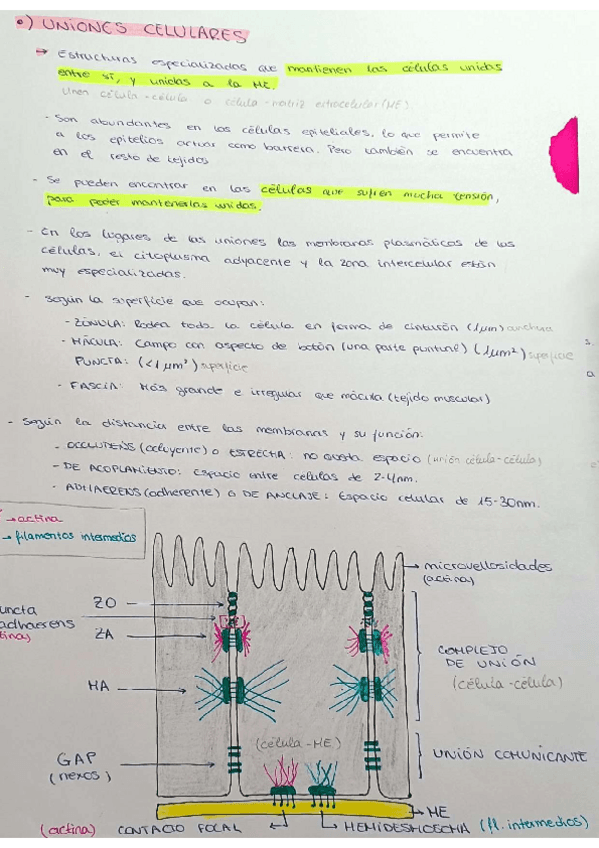 •) UNIONES CELULARES
→ Estructuras especializadas que mantienen las células unidas
entre sí, y unidas a la ME.
Unen célula-célula o célula-matriz extracelular (ME)
- Son abundantes en las células epiteliales, lo que permite
a los epitelios actuar como barrera. Pero también se encuentra
en el resto de tejidos
- Se pueden encontrar en las células que sufren mucha tensión,
para poder mantenerlas unidas.
- En los lugares de las uniones las membranas plasmáticas de las
células, el citoplasma adyacente y la zona intercelular están
muy especializadas.
- Según la superficie que ocupan:
- ZÓNULA: Rodea toda la célula en forma de cinturón (1µm) anchura
- MÁCULA: Campo con aspecto de botón (una parte puntual) (1µm²) superficie
PUNCTA: (<1µm²) superficie
- FASCIA: Más grande e irregular que mácula (tejido muscular)
- Según la distancia entre las membranas y su función:
- OCCLUDENS (ocluyente) o ESTRECHA: no queda espacio (unión célula-célula)
- DE ACOPLAMIENTO: Espacio entre células de 2-4nm.
- ADHAERENS (adherente) o DE ANCLAJE: Espacio celular de 15-30nm.
→ actina
→ filamentos intermedios
microvellosidades
(actina)
ZO
uncta
adhaerens
tina)
ZA
COMPLEJO
DE UNIÓN
(célula-célula)
MA
(célula-ME)
GAP
(nexos)
UNIÓN COMUNICANTE
ME
(actina) CONTACTO FOCAL
HEMIDESMOSOMA (fl. intermedios)